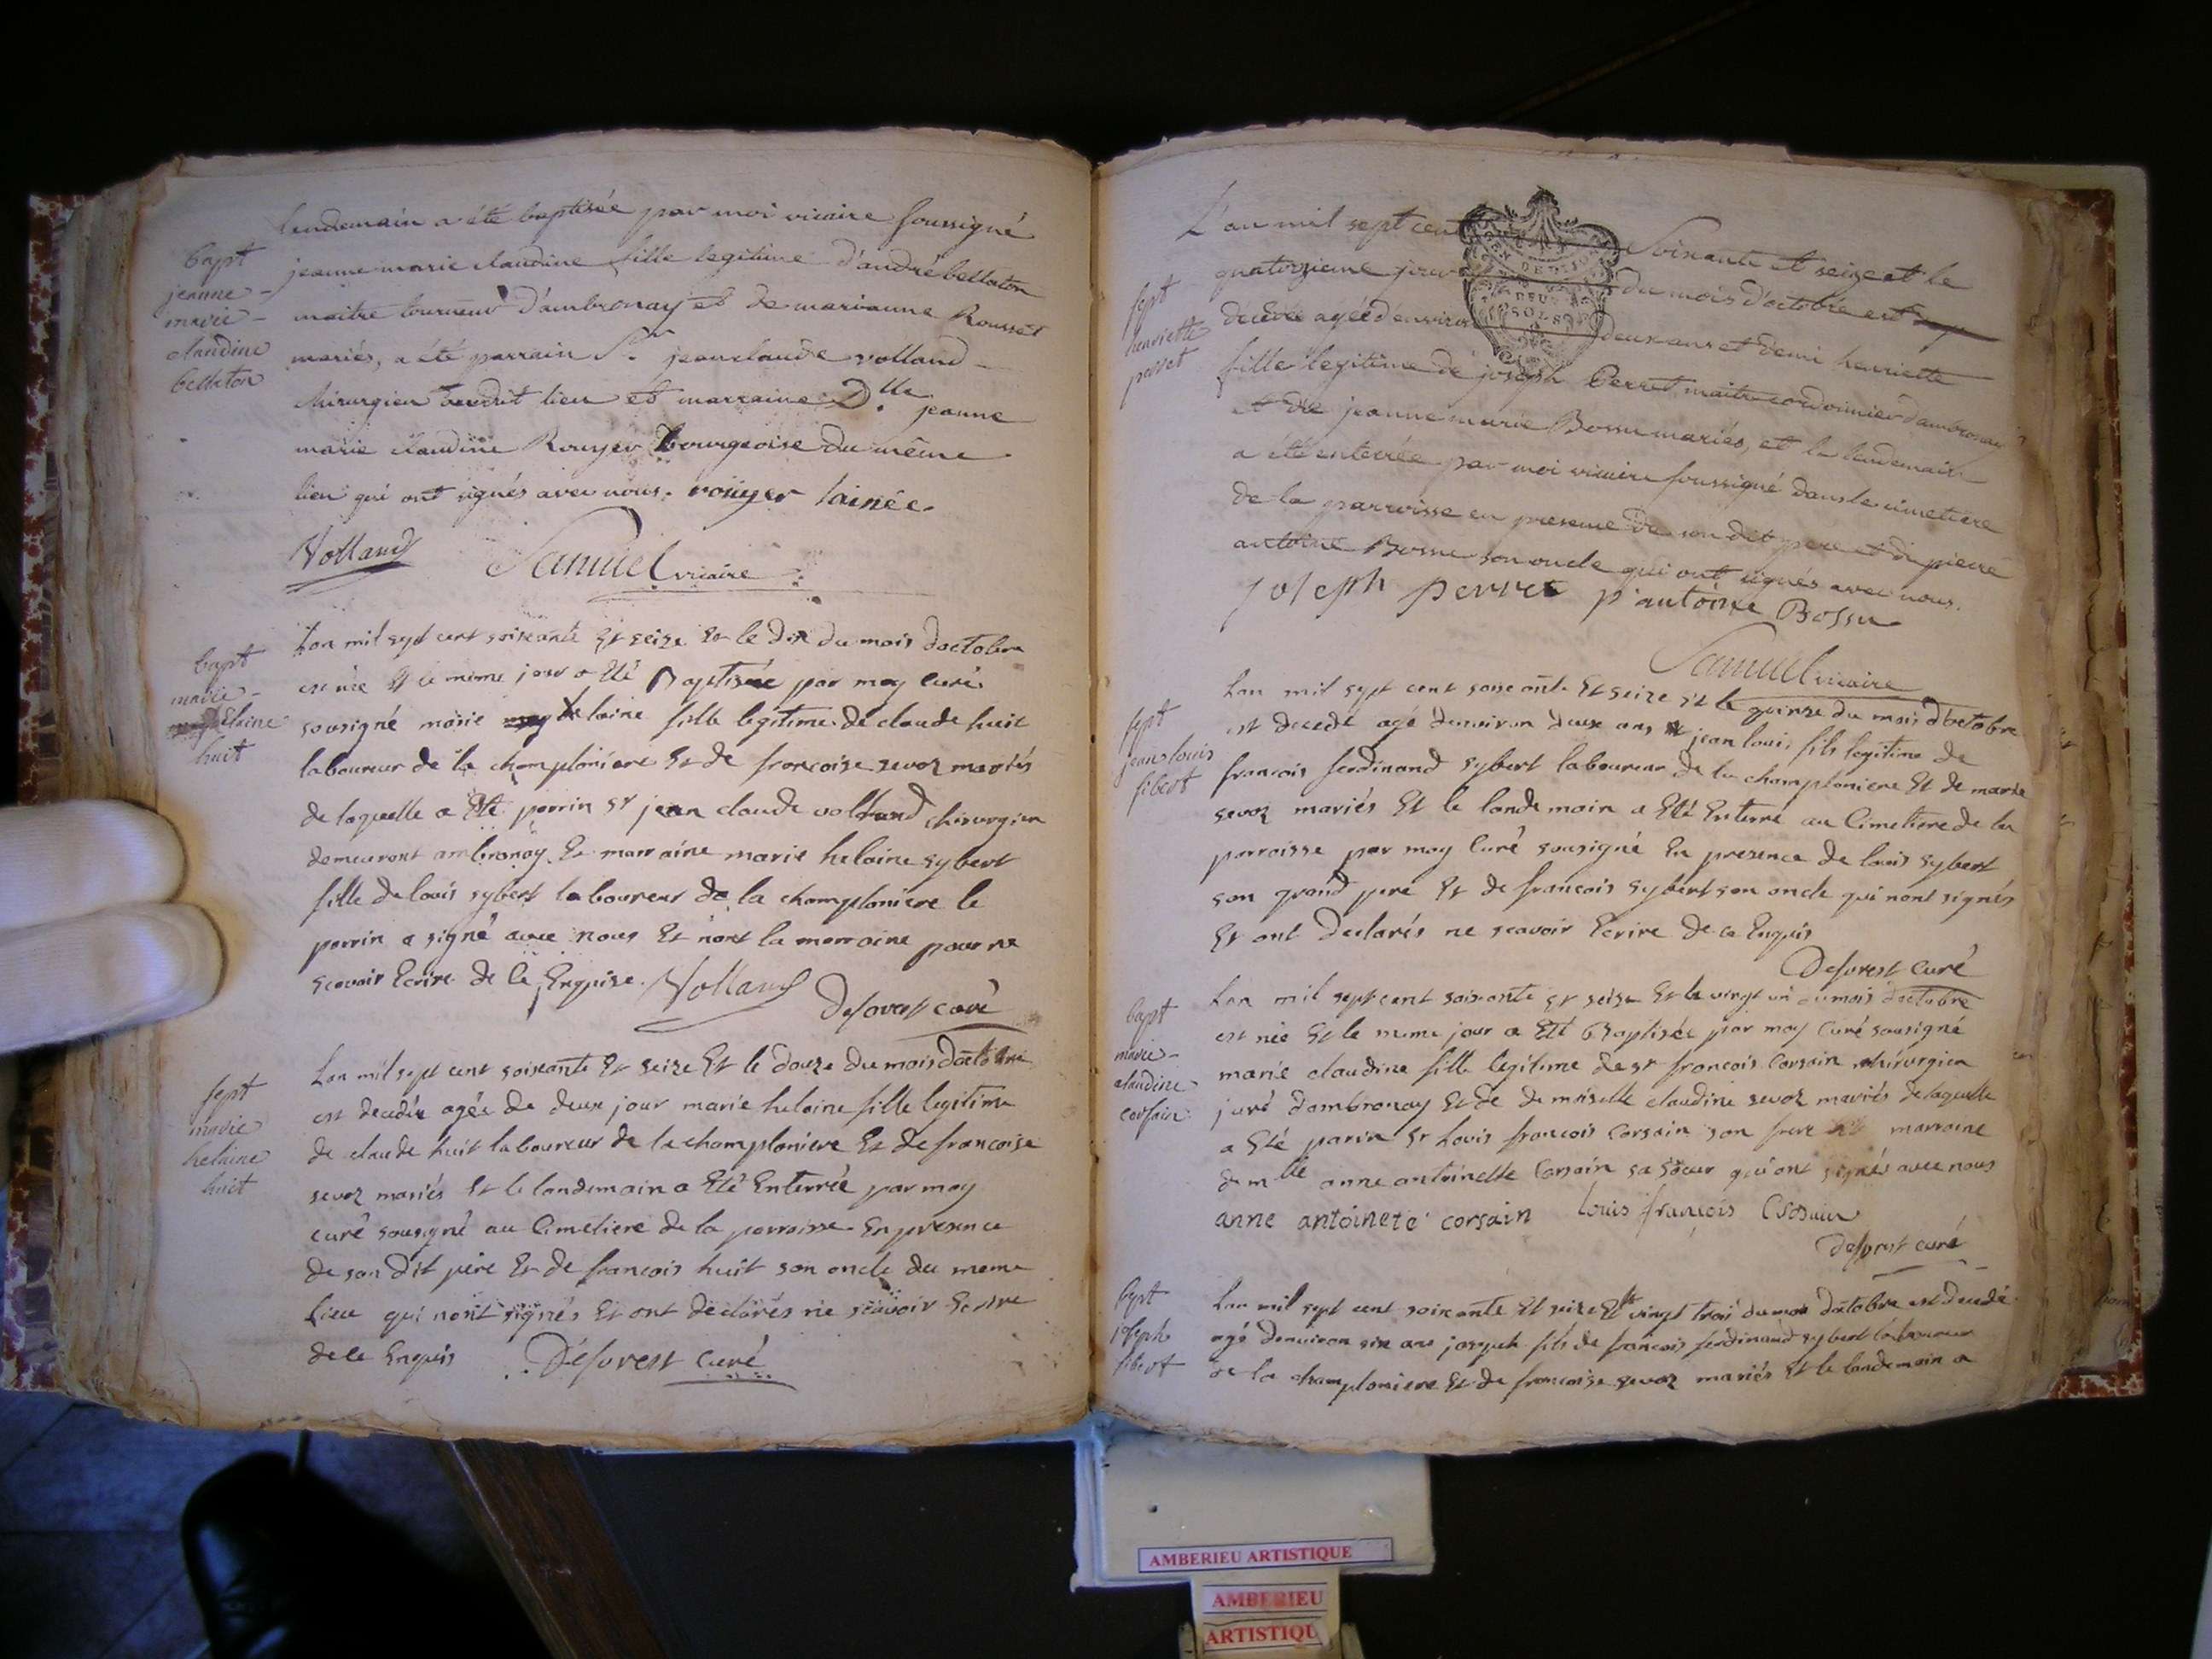 lendemain a été baptisée par moi vicaire soussigné
bapt
jeanne -
marie -
claudine
bellaton
jeanne marie claudine fille legitime d'andré bellaton
maitre tourneur d'ambronay et de marianne Rousset
mariés, a été parrain Sr. jean claude volland -
chirurgien dudit lieu et marraine Dlle. jeanne
marie claudine Rouyer bourgeoise du même
lieu qui ont signés avec nous. roüyer lainée
Volland Samuel vicaire
bapt
marie -
helaine
huit
Lan mil sept cent soixante Et seize Et le dix du mois doctobre
est née Et le meme jour a Eté Baptisée par moy curé
sousigné marie helaine fille legitime de claude huit
laboureur de la champloniere Et de francoise sevoz mariés
de laquelle a Eté parrin sr jean claude volland chirurgien
demeurant ambronay Et marraine marie helaine sybert
fille de louis sybert laboureur de la champloniere le
parrin a signé avec nous Et non la marraine pour ne
scavoir Ecrire de ce Enquise. Volland
Deforest curé
sept
marie
helaine
huit
Lan mil sept cent soixante Et seize Et le douze du mois doctobre
est decedée agée de deux jour marie helaine fille legitime
de claude huit laboureur de la champloniere Et de francoise
sevoz mariés Et le landemain a Eté Enterrée par moy
curé sousigné au Cimetiere de la parroisse En presence
de son dit pere Et de francois huit son oncle du meme
lieu qui nont signés Et ont declarés ne scavoir Ecrire
de ce Enquis Deforest curé
L'an mil sept cent Soixante et seize et le
sept
henriette
perret
quatorzieme jour du mois d'octobre est
décédée agée d'environ deux ans et demi henriette
fille legitime de joseph Perret maitre cordonnier dambronay
et de jeanne marie Bossu mariés, et le lendemain
a été enterrée par moi vicaire soussigné dans le cimetiere
de la parroisse en presence de son dit pere et de pierre
antoine Bossu son oncle qui ont signés avec nous.
joseph perret p antoine Bossu
Samuel vicaire
sept
jean louis
sibert
Lan mil sept cent soixante Et seize Et le quinze du mois d'octobre
est decedé agé denviron deux ans jean louis fils legitime de
francois ferdinand sybert laboureur de la champloniere Et de marie
sevoz mariés Et le landemain a Eté Enterré au Cimetiere de la
parroisse par moy Curé sousigné En presence de louis sybert
son grand pere Et de francois sybert son oncle qui nont signés
Et ont declarés ne scavoir Ecrire de ce Enquis
Deforest curé
bapt
marie -
claudine
corsain
Lan mil sept cent soixante Et seize Et le vingt un du mois doctobre
est née Et le meme jour a Eté Baptisée par moy Curé sousigné
marie claudine fille legitime de sr francois Corsain chirurgien
juré dambronay Et de demoiselle claudine sevoz mariés de laquelle
a Eté parin sr Louis francois Corsain son frere Et marraine
demlle anne antoinette Corsain sa soeur qui ont signés avec nous
anne antoinete corsain Louis françois Corsain
Deforest curé
joseph
sibert
Lan mil sept cent soixante Et seize Et le vingt trois du mois doctobre est decedé
agé denviron six ans joseph fils de francois ferdinand sybert laboureur
de la champloniere Et de francoise sevoz mariés Et le landemain a
AMBERIEU ARTISTIQUE
AMBERIEU
ARTISTIQU